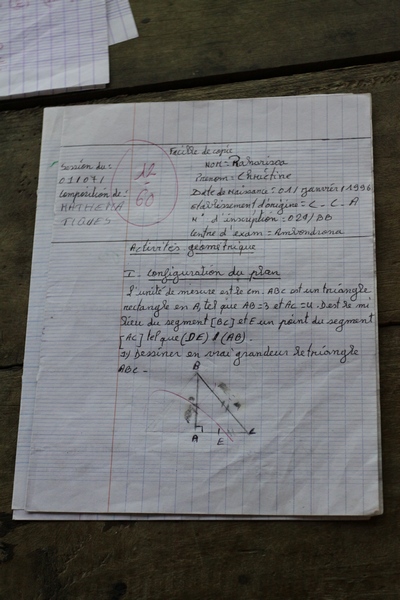 Feuille de copie
Session du:
011071
Composition de:
MATHEMA
TIQUES
60
Nom = Rakoarisoa
Prénom = Christine
Date de Naissance = 01 janvier 1996
Etablissement d'origine = C - C - A
N° d'inscription = 029/BB
Centre d'exam = Amivondrona
Activités géométrique
I - Configuration du plan
L'unité de mesure est le cm. ABC est un triangle
rectangle en A, tel que AB=3 et AC=4. D est le mi
lieu du segment [BC] et E un point du segment
[AC] tel que (DE) (AB).
1) Dessiner en vrai grandeur le triangle
ABC -
B
A
E
C